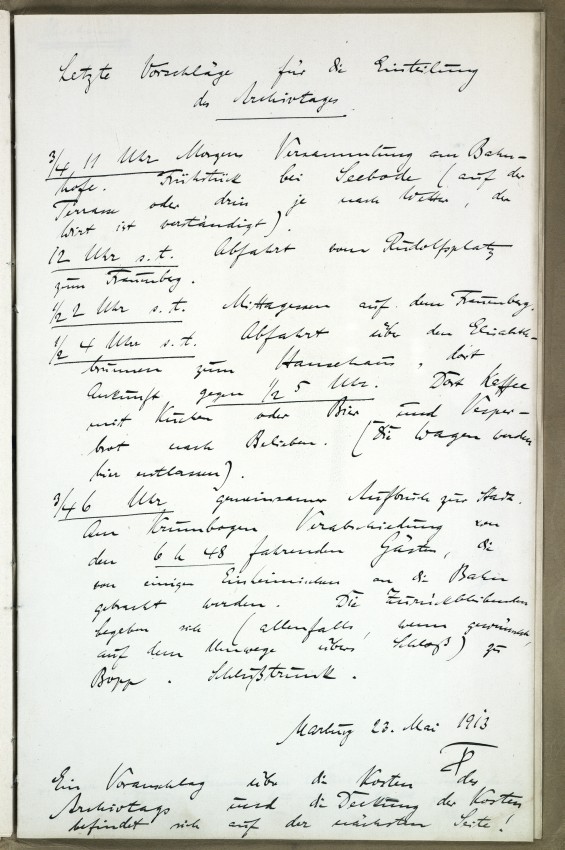 Letzte Vorschläge für die Einteilung
des Archivtages.
3/4 11 Uhr Morgens Versammlung am Bahn-
hofe. Frühstück bei Seebode (auf der
Terrasse oder drin je nach Wetter, der
Wirt ist verständigt).
12 Uhr s.t. Abfahrt vom Rudolfsplatz
zum Frauenberg.
1/2 2 Uhr s.t. Mittagessen auf dem Frauenberg.
1/2 4 Uhr s.t. Abfahrt über den Elisabeth-
brunnen zum Hansehaus, dort
Ankunft gegen 1/2 5 Uhr. Dort Kaffee
mit Kuchen oder Bier und Vesper-
brot nach Belieben. (Die Wagen werden
hier entlassen).
3/4 6 Uhr gemeinsamer Aufbruch zur Stadt.
Am Krummbogen Verabschiedung von
den 6 h 48 fahrenden Gästen, die
von einigen Einheimischen an die Bahn
gebracht werden. Die Zurückbleibenden
begeben sich (allenfalls, wenn gewünscht,
auf dem Umwege übers Schloß) zu
Bopp. Schlußtrunk.
Marburg 23. Mai 1913
Ein Voranschlag über die Kosten des
Archivtags und die Deckung der Kosten
befindet sich auf der nächsten Seite!